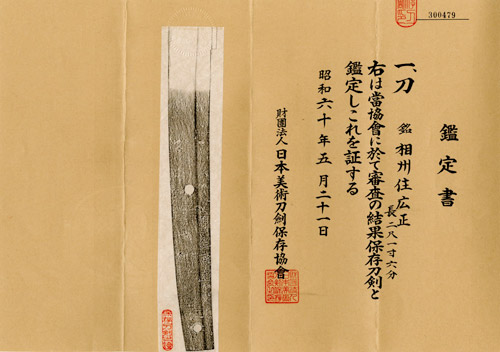 300479
鑑定書
一、刀 銘 相州住広正
長二尺一寸六分
右は當協會に於て審査の結果保存刀剣と
鑑定しこれを証する
昭和六十年五月二十一日
財團法人日本美術刀劍保存協會